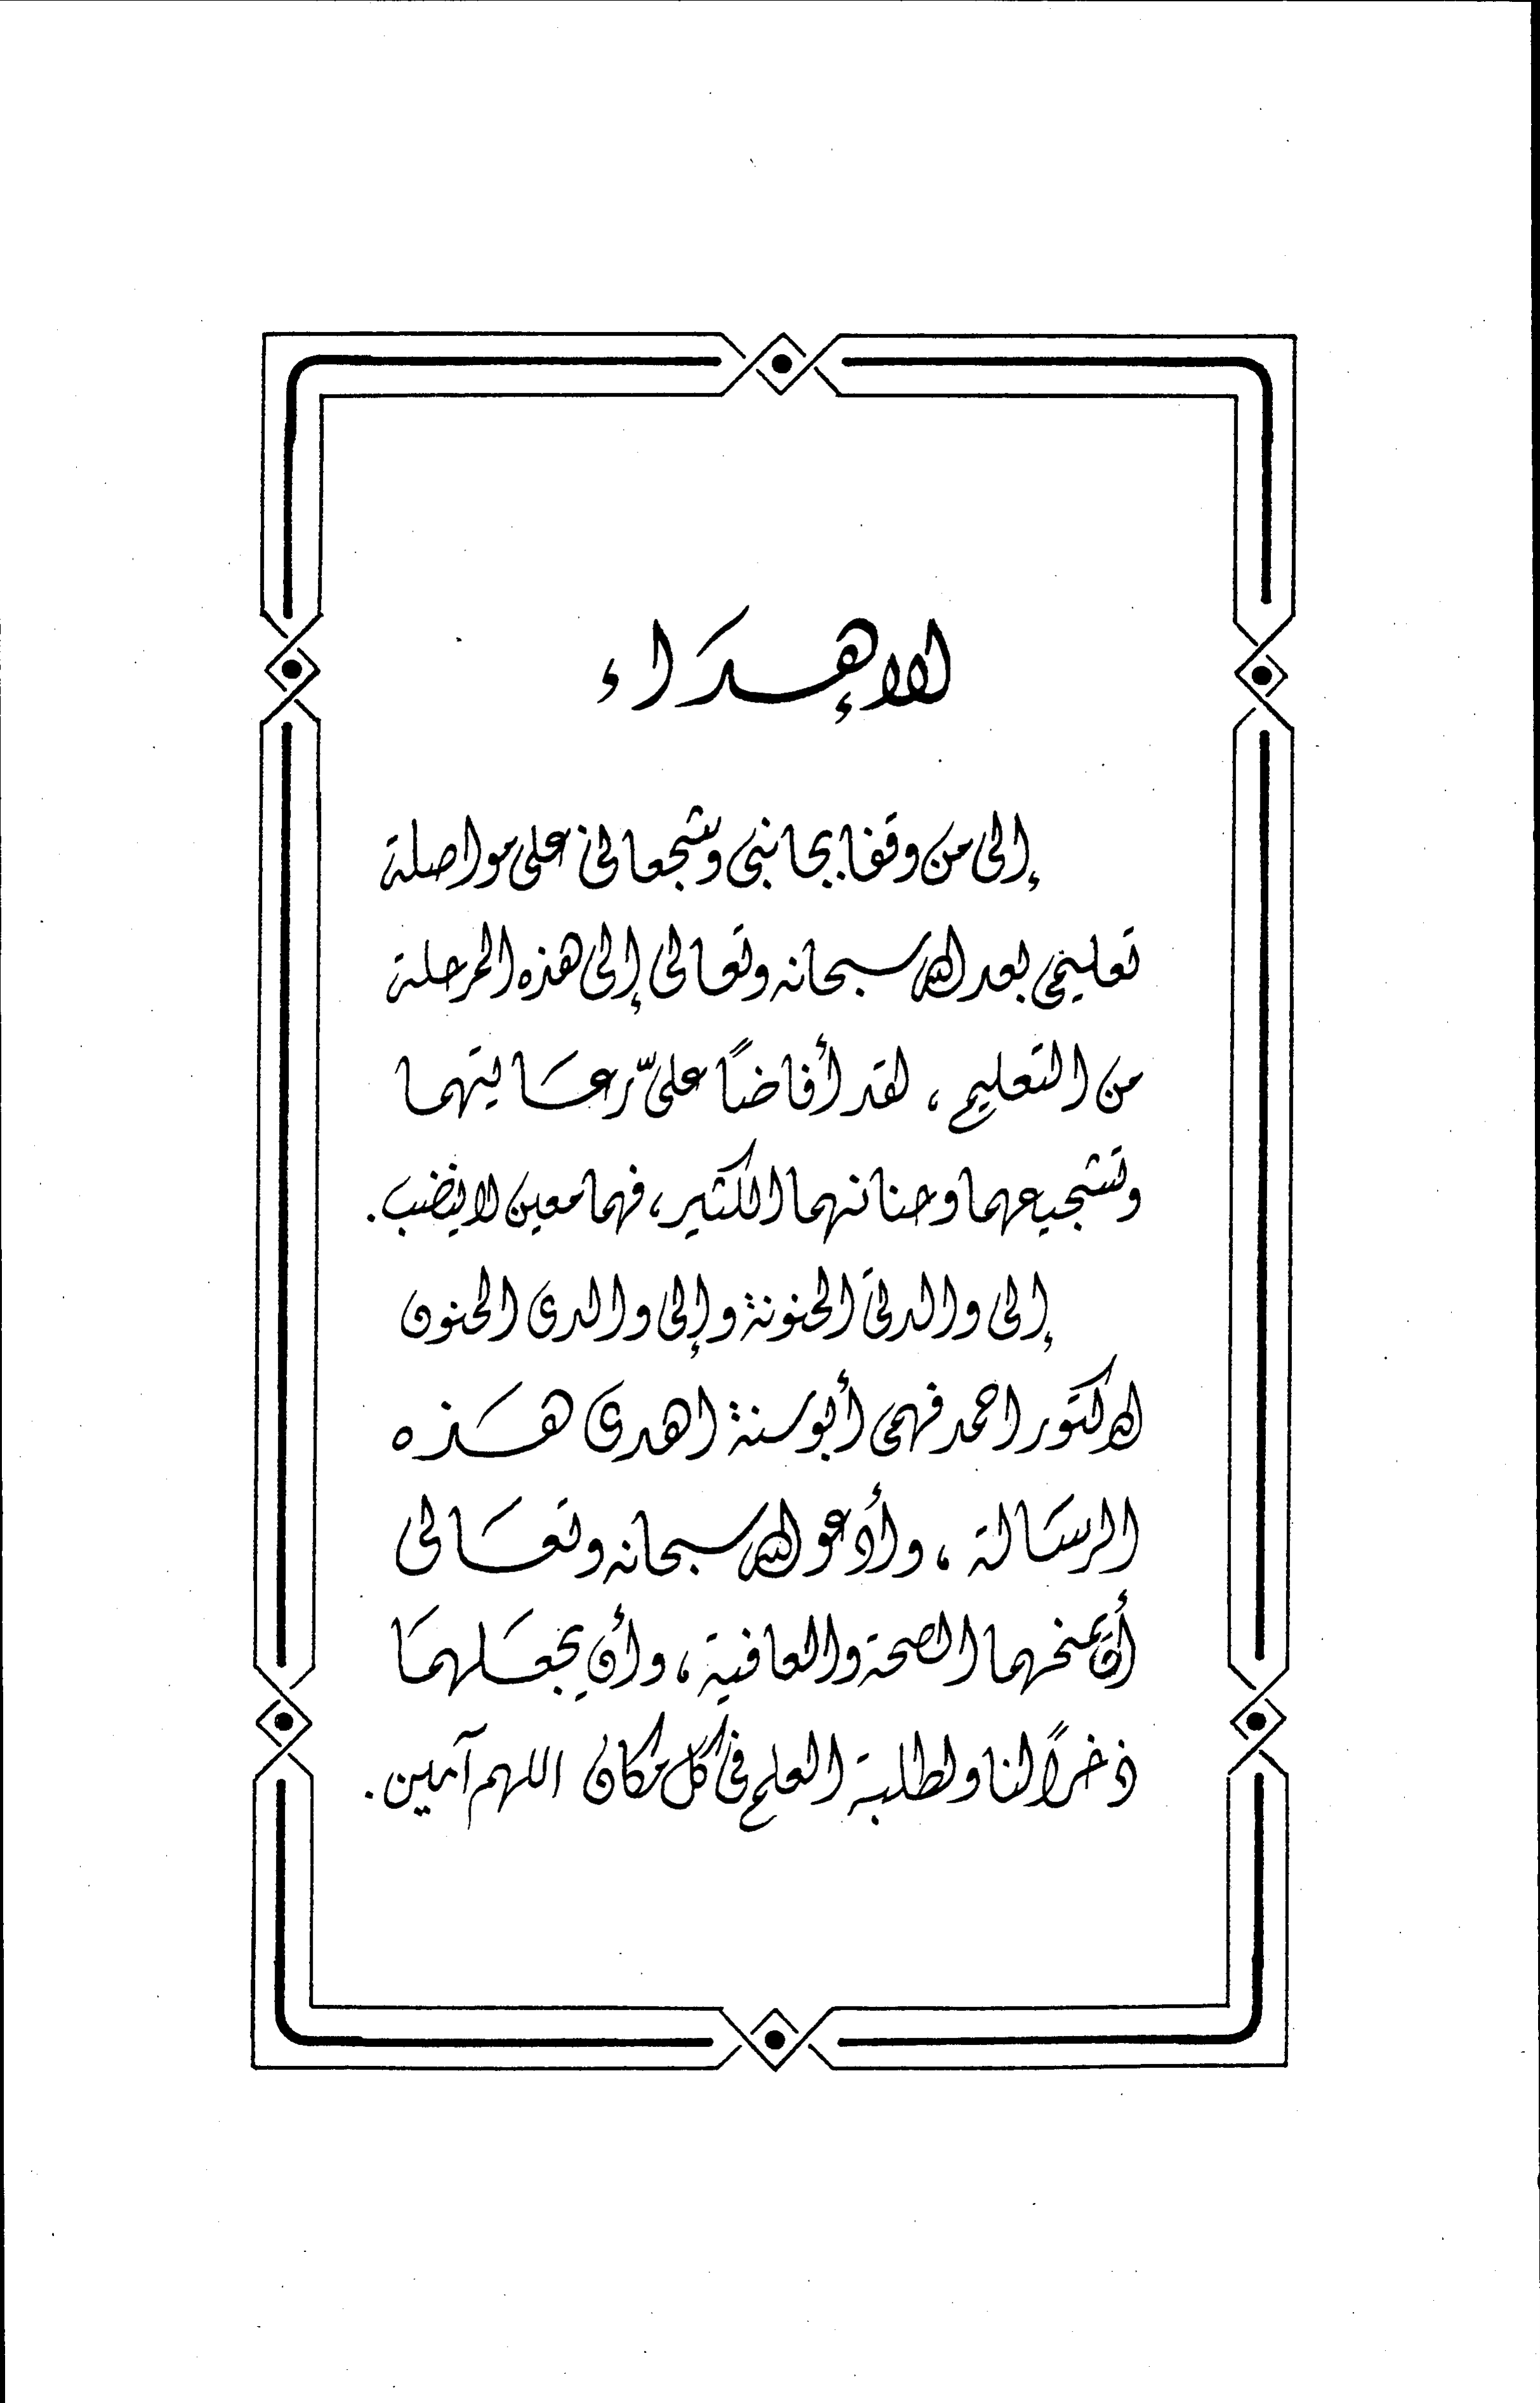 الإهداء
إلى من وقفا بجانبي وشجعاني على مواصلة
تعليمي بعد الله سبحانه وتعالى إلى هذه المرحلة
من التعليم ، لقد أفاضا علىّ رعايتهما
وتشجيعهما وحنانهما الكثير، فهما معين لا ينضب .
إلى والدتي الحنونة وإلى والدى الحنون
الدكتور احمد فهمى أبو سنة اهدى هذه
الرسالة ، وأدعو الله سبحانه وتعالى
أن يمنحهما الصحة والعافية ، وأن يجعلهما
ذخراً لنا ولطلبة العلم في كل مكان اللهم آمين .